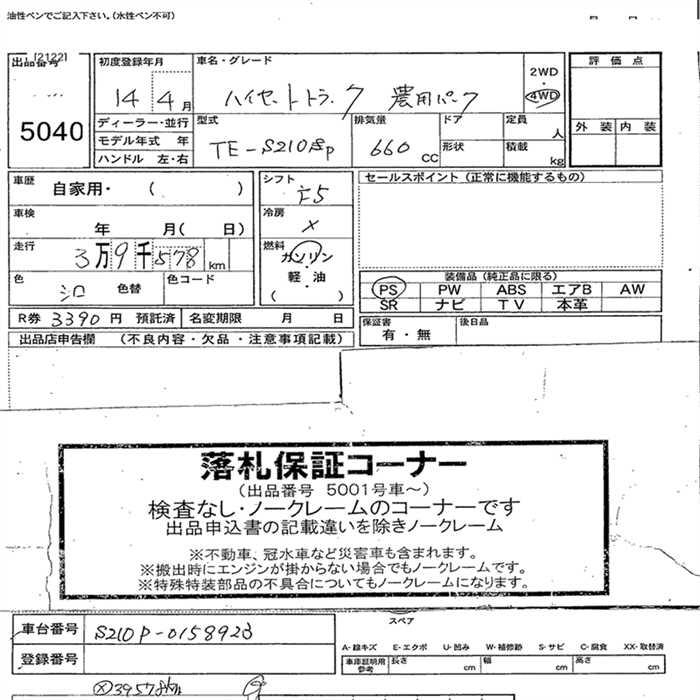 油性ペンでご記入下さい。(水性ペン不可)
[2122]
出品番号
5040
初度登録年月
14 4月
車名・グレード
ハイゼットトラック 農用パック
2WD
・
4WD
評価点
外装 内装
ディーラー・並行
モデル年式 年
ハンドル 左・右
型式
TE-S210P
排気量
660 CC
ドア
形状
定員
人
積載
kg
車歴
自家用・( )
シフト
F5
セールスポイント(正常に機能するもの)
車検
年 月( 日)
冷房
×
走行
3万9千578km
燃料
ガソリン
軽・油
( )
色
シロ 色替
色コード
装備品(純正品に限る)
PS PW ABS エアB AW
SR ナビ TV 本革
R券 3390円 預託済
名変期限 月 日
保証書
有・無
後日品
出品店申告欄 (不良内容・欠品・注意事項記載)
落札保証コーナー
(出品番号 5001号車~)
検査なし・ノークレームのコーナーです
出品申込書の記載違いを除きノークレーム
※不動車、冠水車など災害車も含まれます。
※搬出時にエンジンが掛からない場合でもノークレームです。
※特殊特装部品の不具合についてもノークレームになります。
車台番号
S210P-0158923
登録番号
スペア
A-線キズ E-エクボ U-凹み W-補修跡 S-サビ C-腐食 XX-取替済
車庫証明用
参考
長さ cm
幅 cm
高さ cm
Ⓧ39578km